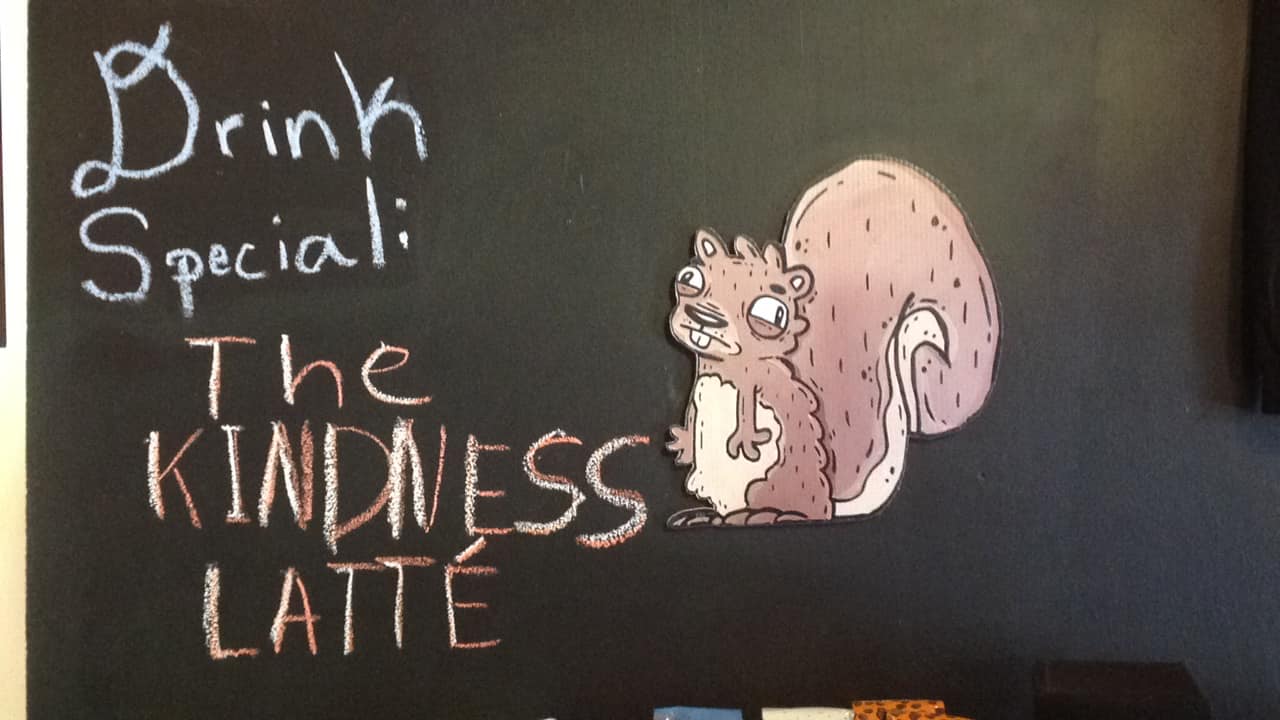 Drink
Special:
The
KINDNESS
LATTÉ